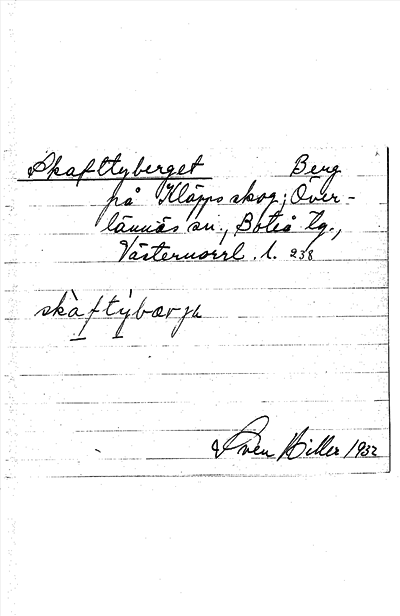 Skafttyberget Berg
på Kläpps skog; Över-
lännäs sn., Boteå tg.,
Västernorrl. l. 238
skàftýbærjh
Sven Hiller 1932